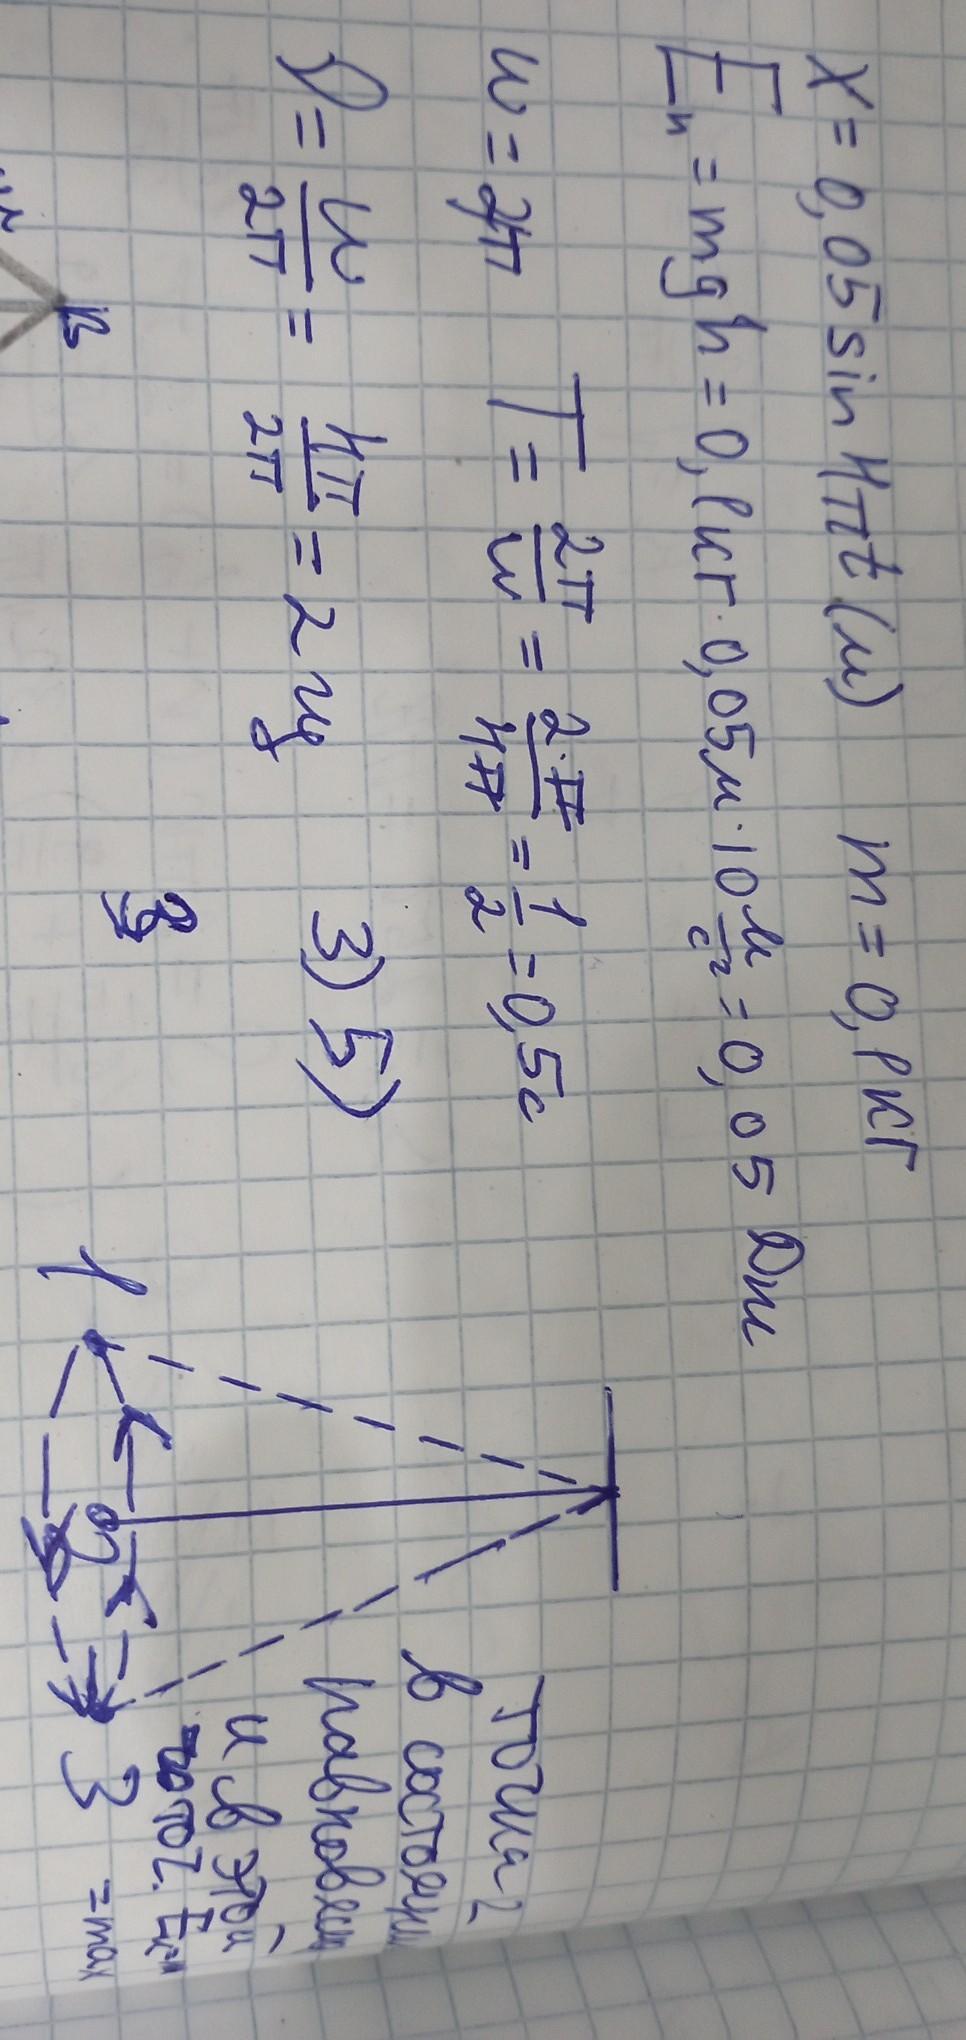 x = 0,05 sin 4πt (м) m = 0,1 кг
Eп = mgh = 0,1 кг · 0,05 м · 10 м/с² = 0,05 Дж
ω = 2π T = 2π/ω = 2·π/4π = 1/2 = 0,5 с
ν = ω/2π = 4π/2π = 2 гц 3) 5)
точка 2
в состоянии
равновесия
и в этой
точ. Eк
= max
1
2
3
B